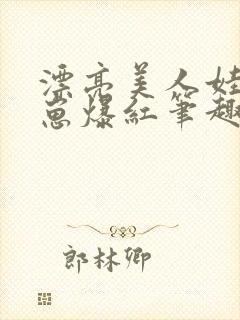 漂亮美人娃
崽爆紅筆趣
郎林卿